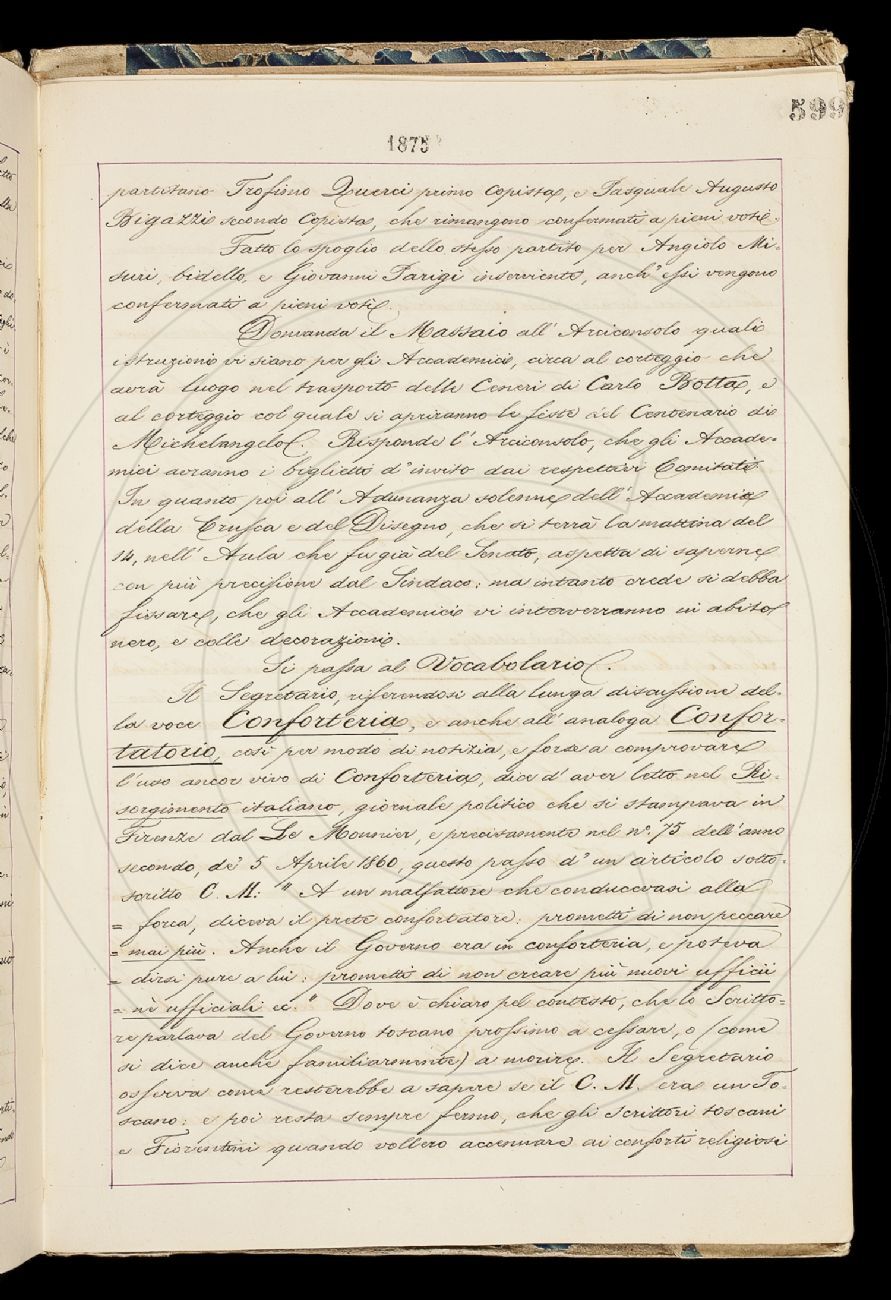 599
1875
partitario Trofimo Querci primo Copista, e Pasquale Augusto
Bigazzi secondo Copista, che rimangono confermati a pieni voti.
Fatto lo spoglio dello stesso partito per Angiolo Mi-
suri, bidello, e Giovanni Parigi inserviente, anch'essi vengono
confermati a pieni voti.
Domanda il Massaio all'Arciconsolo quali
istruzioni vi siano per gli Accademici, circa al corteggio che
avrà luogo nel trasporto delle Ceneri di Carlo Botta, e
al corteggio col quale si apriranno le feste del Centenario di
Michelangelo. Risponde l'Arciconsolo, che gli Accade-
mici avranno i biglietti d'invito dai respettivi Comitati.
In quanto poi all'Adunanza solenne dell'Accademia
della Crusca e del Disegno, che si terrà la mattina del
14, nell'Aula che fu già del Senato, aspetta di saperne
con più precisione dal Sindaco: ma intanto crede si debba
fissare, che gli Accademici vi interverranno in abito
nero, e colle decorazioni.
Si passa al Vocabolario.
Il Segretario, riferendosi alla lunga discussione del-
la voce Conforteria, e anche all'analoga Confor-
tatorio, così per modo di notizia, e forse a comprovare
l'uso ancor vivo di Conforteria, dice d'aver letto nel Ri-
sorgimento italiano, giornale politico che si stampava in
Firenze dal Le Monnier, e precisamente nel n.° 75 dell'anno
secondo, de' 5 Aprile 1860, questo passo d'un articolo sotto-
scritto C. M: " A un malfattore che conducevasi alla
= forca, diceva il prete confortatore: prometti di non peccare
= mai più. Anche il Governo era in conforteria, e poteva
= dirsi pure a lui: prometti di non creare più nuovi ufficii
= nè ufficiali ec. " Dove è chiaro pel contesto, che lo Scritto-
re parlava del Governo toscano prossimo a cessare, o (come
si dice anche familiarmente) a morire. Il Segretario
osserva come resterebbe a sapere se il C. M. era un To-
scano: e poi resta sempre fermo, che gli Scrittori toscani
e Fiorentini quando vollero accennare ai conforti religiosi